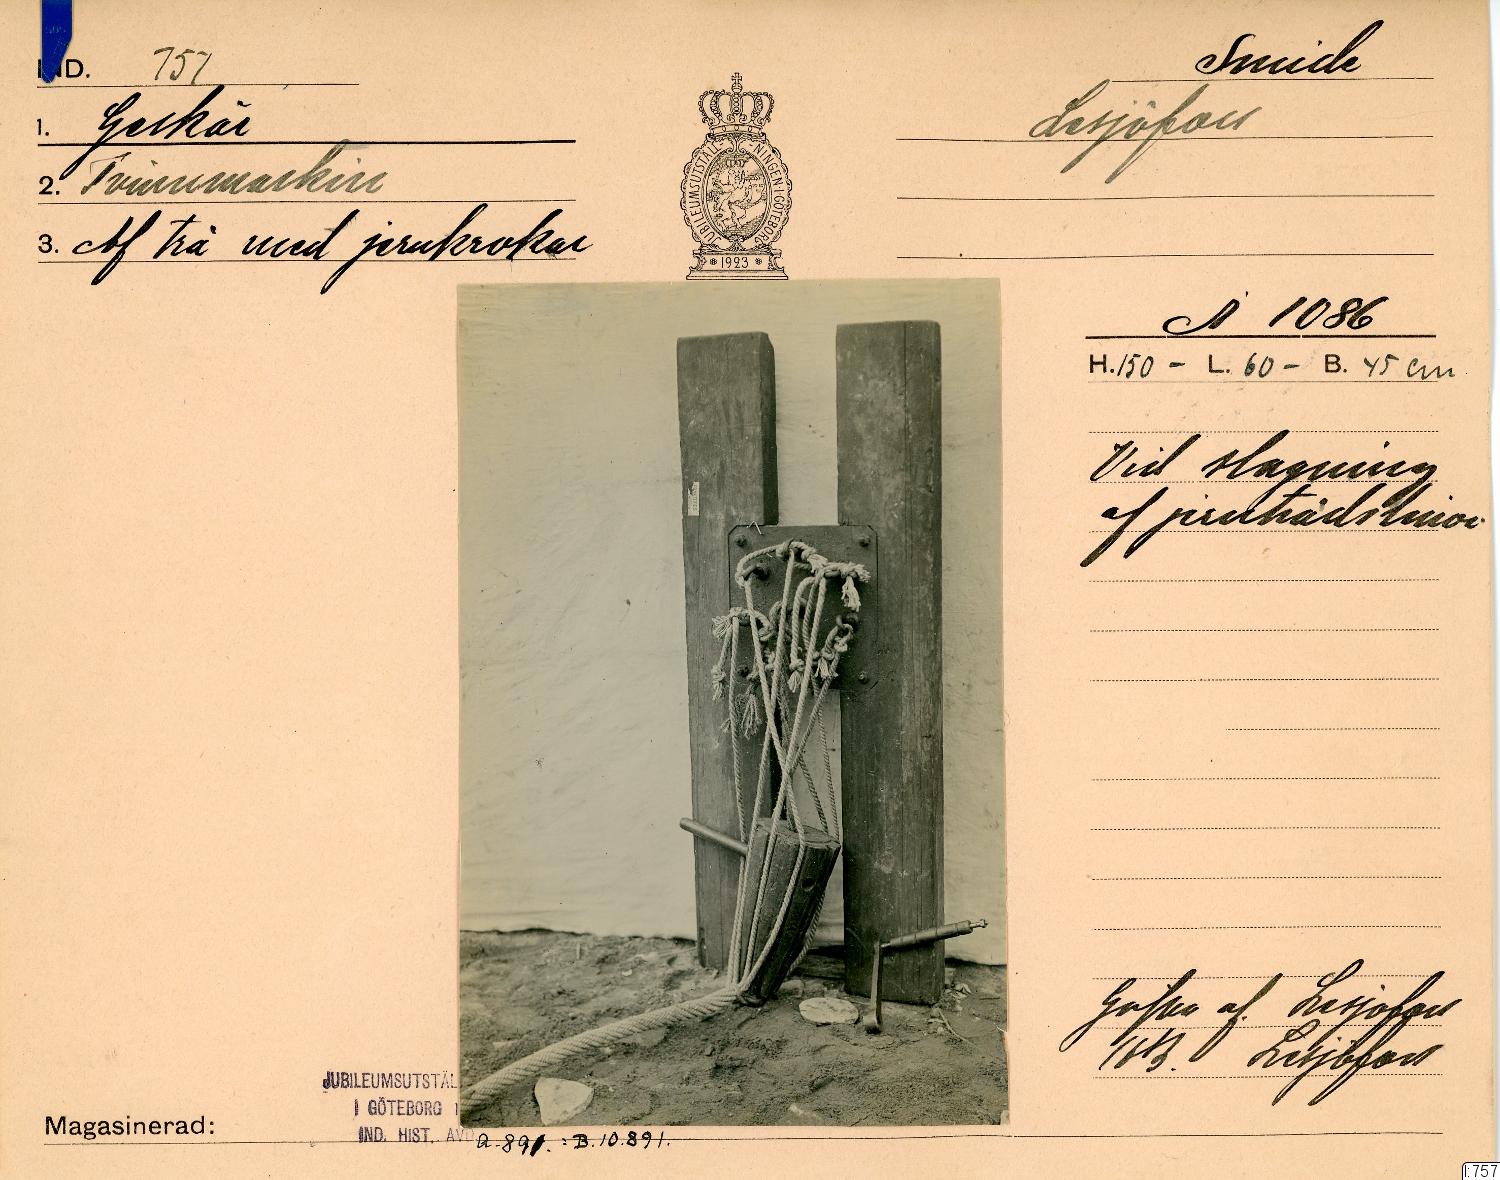 IND. 757
1. Geskär
2. Tvinnmaskin
3. Af trä med jernkrokar
JUBILEUMSUTSTÄLLNINGEN I GÖTEBORG
* 1923 *
Smide
Lesjöfors
N 1086
H. 150 - L. 60 - B. 45 cm
Vid slagning
af jerntrådslinor
Gåfva af Lesjöfors
AB. Lesjöfors
JUBILEUMSUTSTÄL
I GÖTEBORG 1
IND. HIST. AVD
Magasinerad:
a. 891. : B.10.891.
I:757